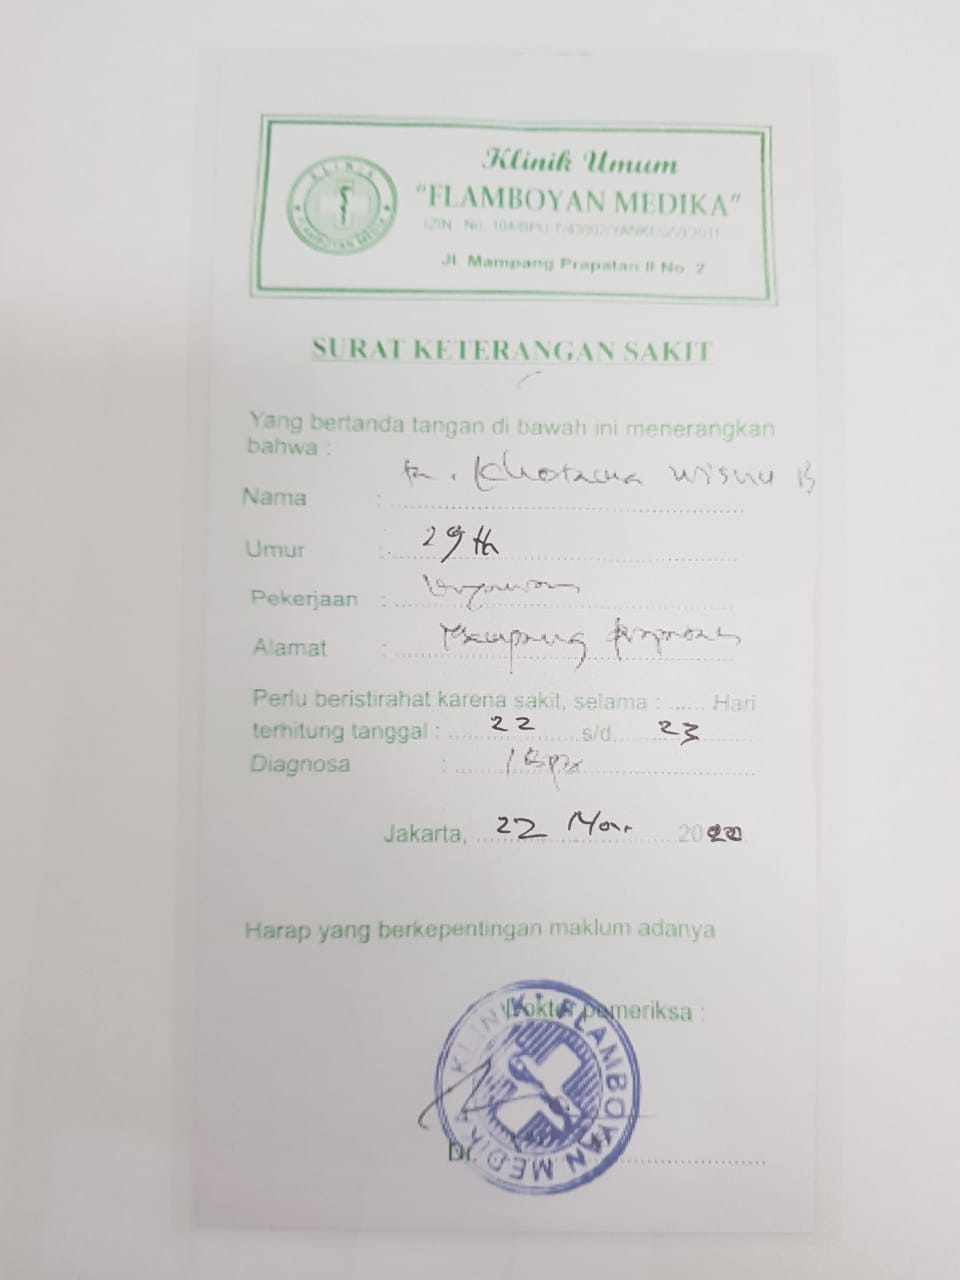 Klinik Umum
"FLAMBOYAN MEDIKA"
Jl. Mampang Prapatan II No. 2
KLINIK
FLAMBOYAN MEDIKA
SURAT KETERANGAN SAKIT
Yang bertanda tangan di bawah ini menerangkan
bahwa :
Nama : Wisnu B
Umur : 29 th
Pekerjaan :
Alamat : Mampang Prapatan
Perlu beristirahat karena sakit, selama : ...... Hari
terhitung tanggal : 22 s/d 23
Diagnosa :
Jakarta, 22 Mar 20
Harap yang berkepentingan maklum adanya
Dokter pemeriksa :
KLINIK FLAMBOYAN MEDIKA
Dr.